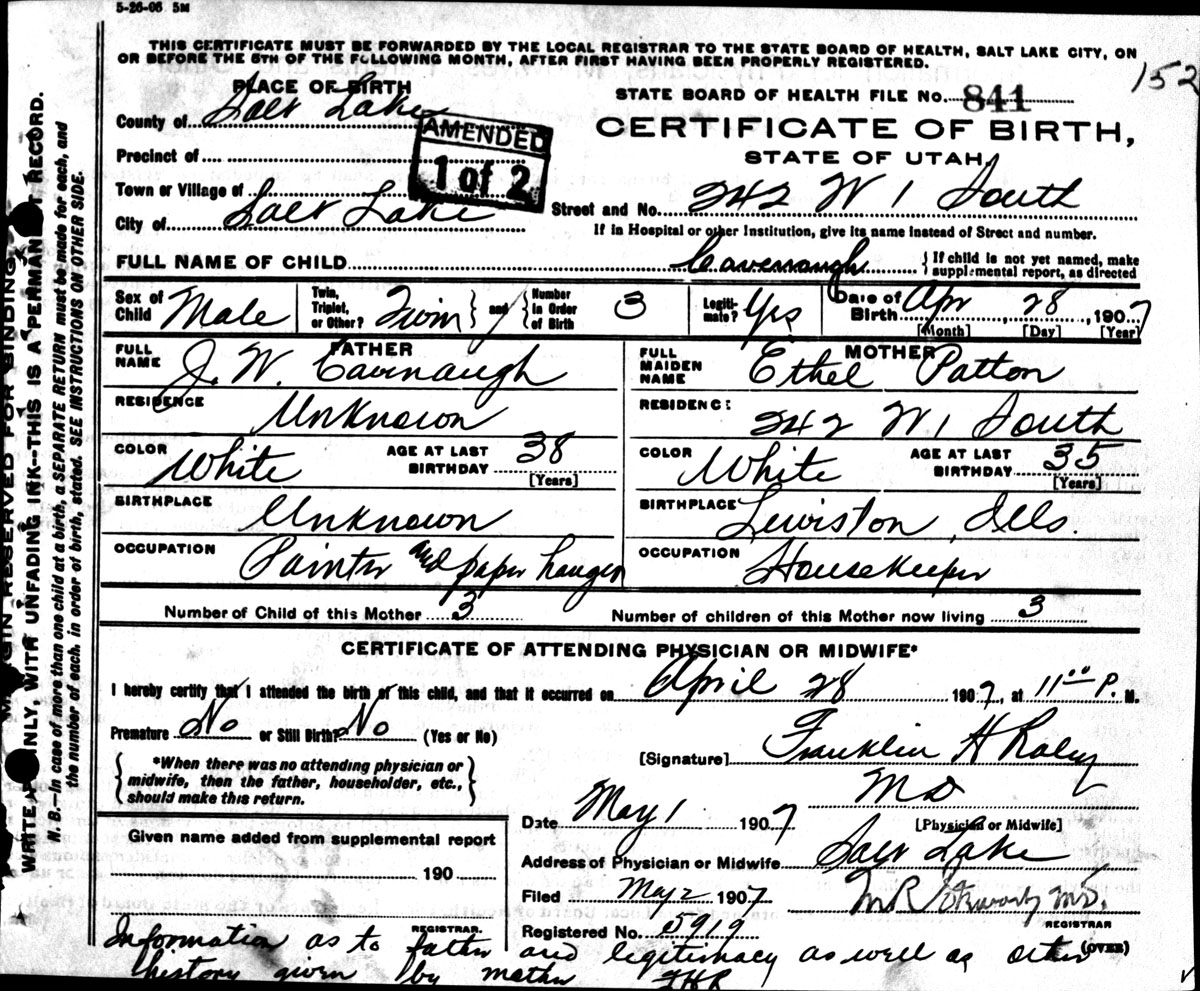 5-26-06 5M
THIS CERTIFICATE MUST BE FORWARDED BY THE LOCAL REGISTRAR TO THE STATE BOARD OF HEALTH, SALT LAKE CITY, ON
OR BEFORE THE 5TH OF THE FOLLOWING MONTH, AFTER FIRST HAVING BEEN PROPERLY REGISTERED.
152
PLACE OF BIRTH
STATE BOARD OF HEALTH FILE No. 841
County of Salt Lake
CERTIFICATE OF BIRTH,
AMENDED
1 of 2
Precinct of
STATE OF UTAH
Town or Village of
City of Salt Lake
Street and No. 242 W 1 South
If in Hospital or other Institution, give its name instead of Street and number.
FULL NAME OF CHILD Cavenaugh { If child is not yet named, make
supplemental report, as directed
Sex of Child Male
Twin, Triplet, or Other? Twin } and { Number in Order of Birth 3
Legiti-mate? Yes
Date of Birth Apr, 28, 1907
[Month] [Day] [Year]
FATHER
FULL NAME J. W. Cavnaugh
MOTHER
FULL MAIDEN NAME Ethel Patton
RESIDENCE Unknown
RESIDENCE 242 W 1 South
COLOR White AGE AT LAST BIRTHDAY 38 [Years]
COLOR White AGE AT LAST BIRTHDAY 35 [Years]
BIRTHPLACE Unknown
BIRTHPLACE Lewiston, Ills.
OCCUPATION Painter and paper hanger
OCCUPATION Housekeeper
Number of Child of this Mother 3 Number of children of this Mother now living 3
CERTIFICATE OF ATTENDING PHYSICIAN OR MIDWIFE*
I hereby certify that I attended the birth of this child, and that it occurred on April 28 1907, at 11 00 P. M.
Premature No or Still Birth? No (Yes or No)
[Signature] Franklin H Raley
MD
[Physician or Midwife]
{ *When there was no attending physician or
midwife, then the father, householder, etc.,
should make this return. }
Date May 1 1907
Given name added from supplemental report
190
REGISTRAR.
Address of Physician or Midwife Salt Lake
Filed May 2 1907
M R Stewart M.D.
REGISTRAR
Registered No. 5919
(OVER)
Information as to father and legitimacy as well as other
history given by mother FHR
MARGIN RESERVED FOR BINDING.
WRITE PLAINLY, WITH UNFADING INK--THIS IS A PERMANENT RECORD.
N. B.—In case of more than one child at a birth, a SEPARATE RETURN must be made for each, and
the number of each, in order of birth, stated. SEE INSTRUCTIONS ON OTHER SIDE.